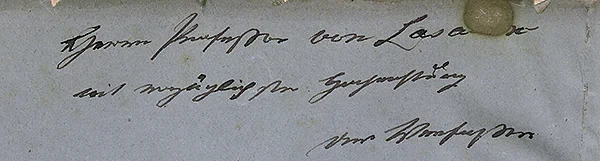 Herrn Professor von Lasaulx
mit vorzüglichster Hochachtung
der Verfasser